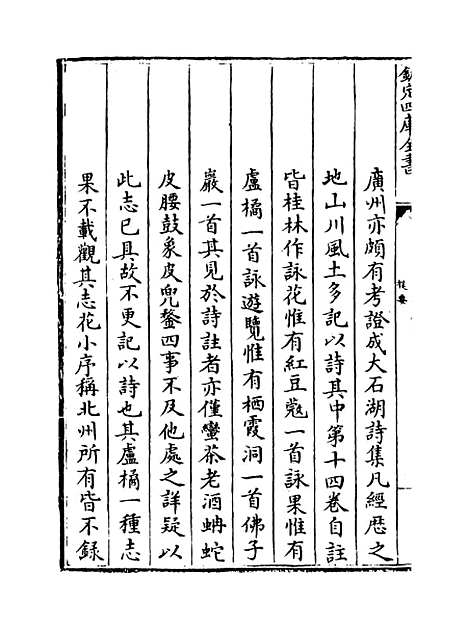 欽定四庫全書
提要
廣州亦頗有考證成大石湖詩集凡經歴之
地山川風土多記以詩其中第十四卷自註
皆桂林作詠花惟有紅豆蔻一首詠果惟有
盧橘一首詠遊覽惟有栖霞洞一首佛子
巖一首其見於詩註者亦僅蠻茶老酒蚺蛇
皮腰鼓象皮兜鍪四事不及他處之詳疑以
此志已具故不更記以詩也其盧橘一種志
果不載觀其志花小序稱北州所有皆不録